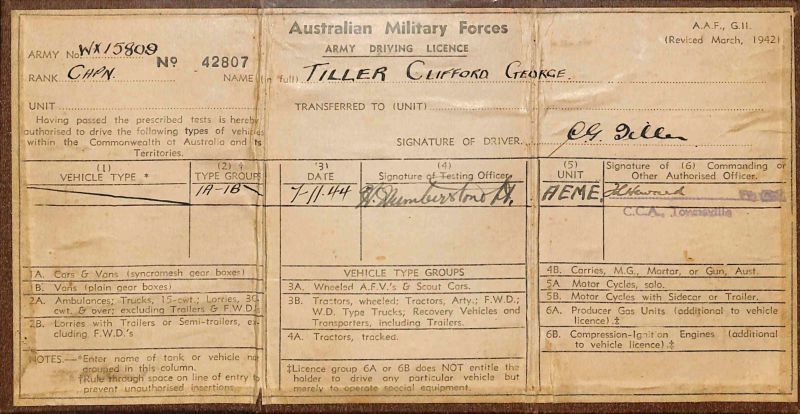 Australian Military Forces
A.A.F., G.11.
(Revised March, 1942)
ARMY DRIVING LICENCE
ARMY No. WX15809
No 42807
RANK CAPN. NAME (in full) TILLER CLIFFORD GEORGE.
UNIT
TRANSFERRED TO (UNIT)
Having passed the prescribed tests is hereby
authorised to drive the following types of vehicles
within the Commonwealth of Australia and its
Territories.
SIGNATURE OF DRIVER. CG Tiller
(1) VEHICLE TYPE *
(2) † TYPE GROUP
(3) DATE
(4) Signature of Testing Officer
(5) UNIT
Signature of (6) Commanding or
Other Authorised Officer.
1A-1B 7-11-44 AEME.
C.C.A., Townsville
1A. Cars & Vans (syncromesh gear boxes)
B. Vans (plain gear boxes)
2A. Ambulances; Trucks, 15-cwt.; Lorries, 30-
cwt. & over; excluding Trailers & F.W.D.'s
2B. Lorries with Trailers or Semi-trailers, ex-
cluding F.W.D.'s
NOTES.—*Enter name of tank or vehicle not
grouped in this column.
†Rule through space on line of entry to
prevent unauthorised insertions.
VEHICLE TYPE GROUPS
3A. Wheeled A.F.V.'s & Scout Cars.
3B. Tractors, wheeled; Tractors, Arty.; F.W.D.;
W.D. Type Trucks; Recovery Vehicles and
Transporters, including Trailers.
4A. Tractors, tracked.
‡Licence group 6A or 6B does NOT entitle the
holder to drive any particular vehicle but
merely to operate special equipment.
4B. Carries, M.G., Mortar, or Gun, Aust.
5A Motor Cycles, solo.
5B. Motor Cycles with Sidecar or Trailer.
6A. Producer Gas Units (additional to vehicle
licence).‡
6B. Compression-Ignition Engines (additional
to vehicle licence).‡